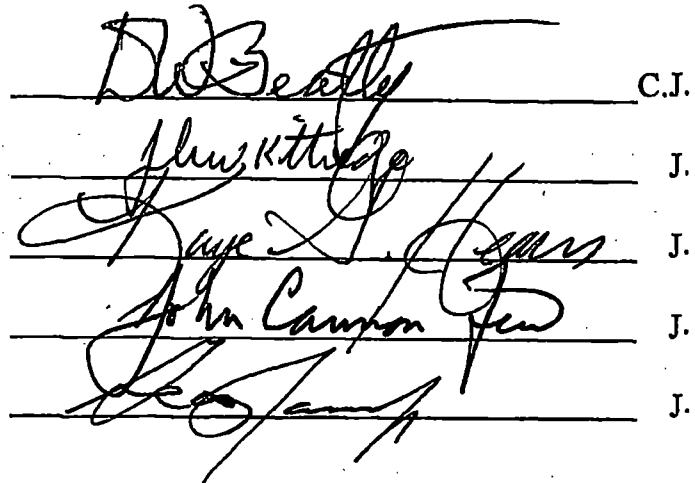 DW Beatty C.J.
John W. Kittredge J.
Kaye G. Hearn J.
John Cannon Few J.
J.